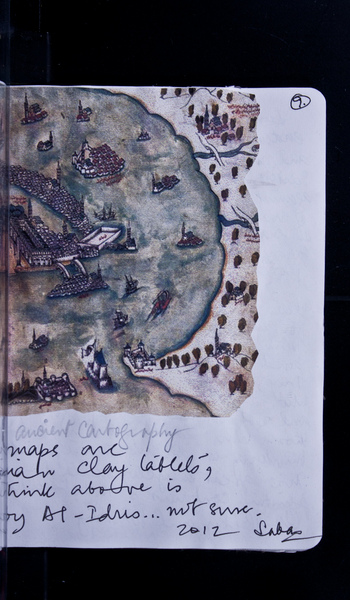 9.
ancient Cartography
maps are
ian clay tablets,
think above is
by Al-Idris... not sure.
2012